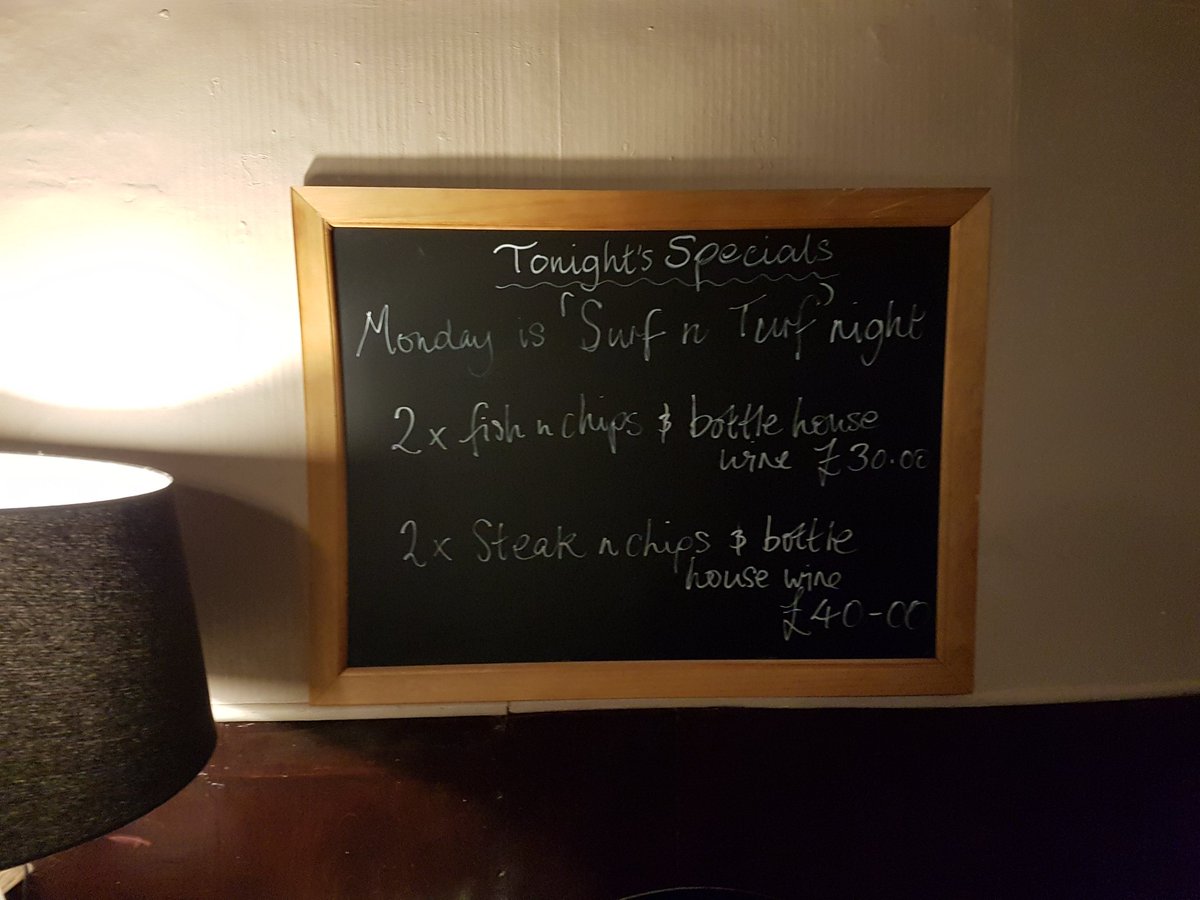 Tonight's Specials
Monday is 'Surf n Turf' night
2 x fish n chips & bottle house
wine £30.00
2 x Steak n chips & bottle
house wine
£40-00